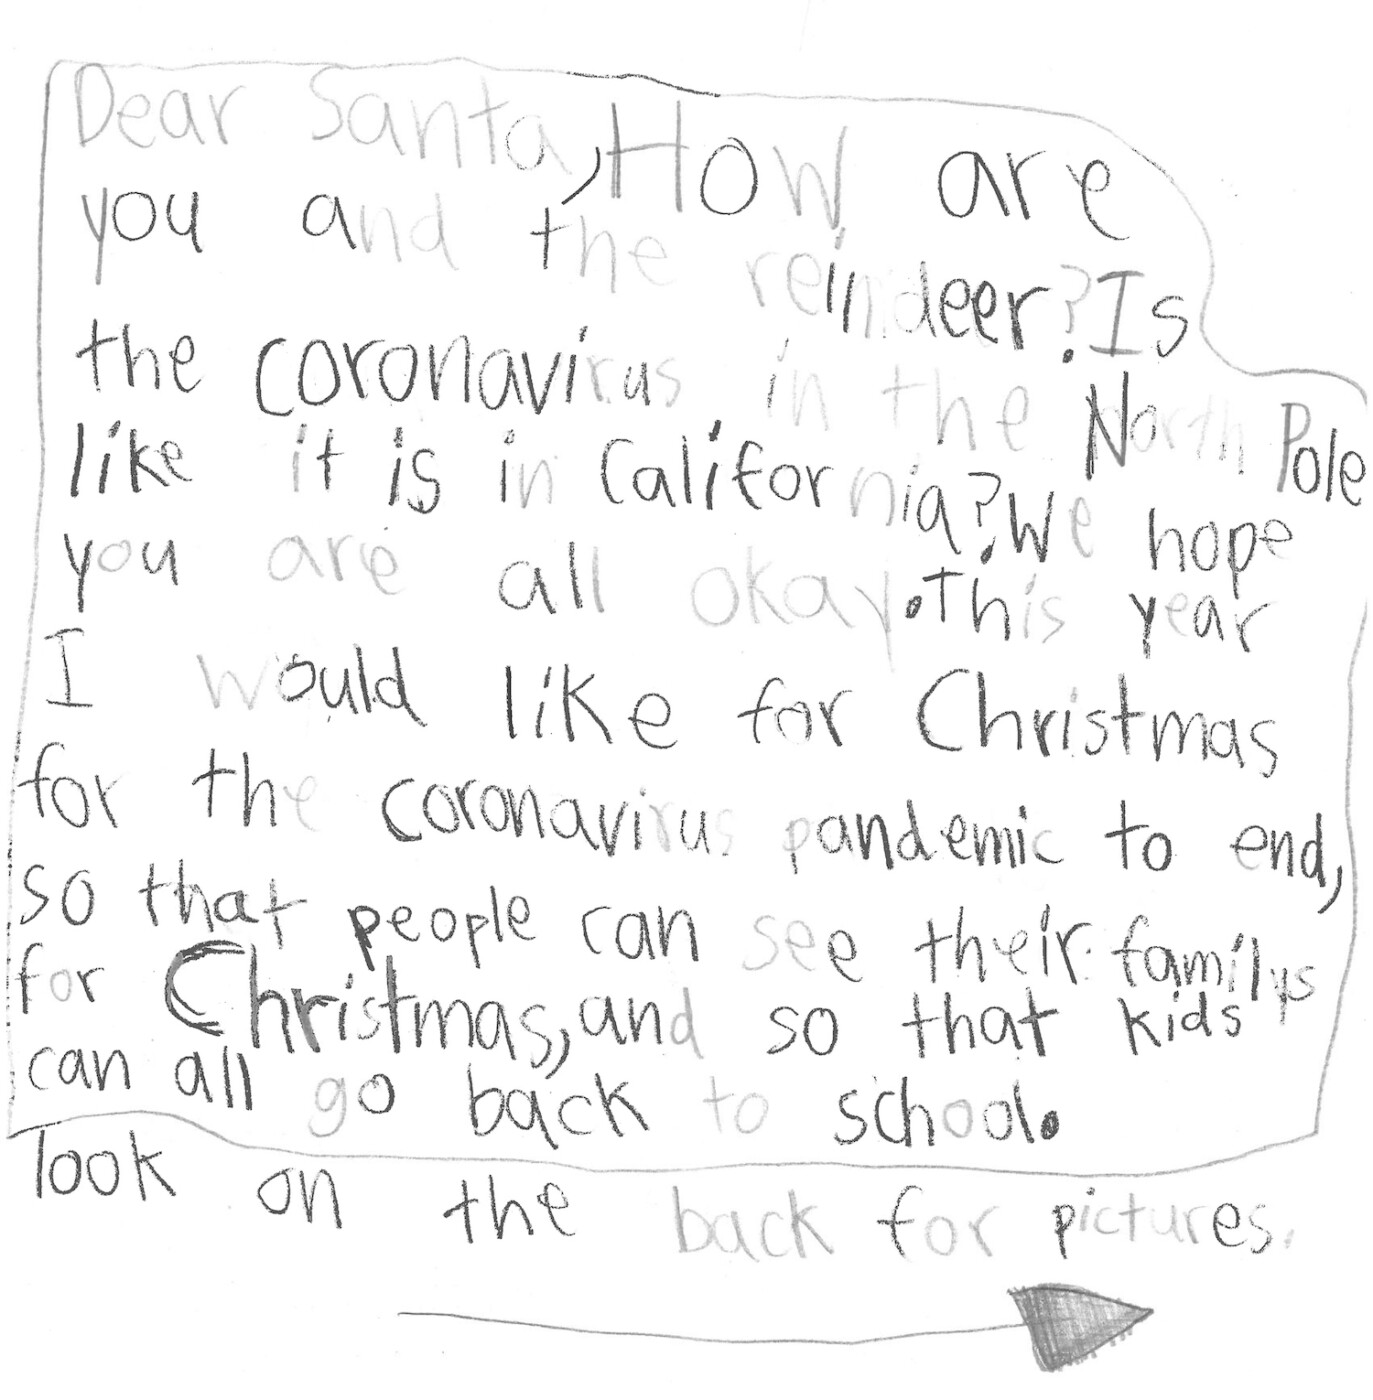 Dear Santa, How are
you and the reindeer? Is
the coronavirus in the North Pole
like it is in California? We hope
you are all okay. This year
I would like for Christmas
for the coronavirus pandemic to end,
so that people can see their familys
for Christmas, and so that kids
can all go back to school.
look on the back for pictures.